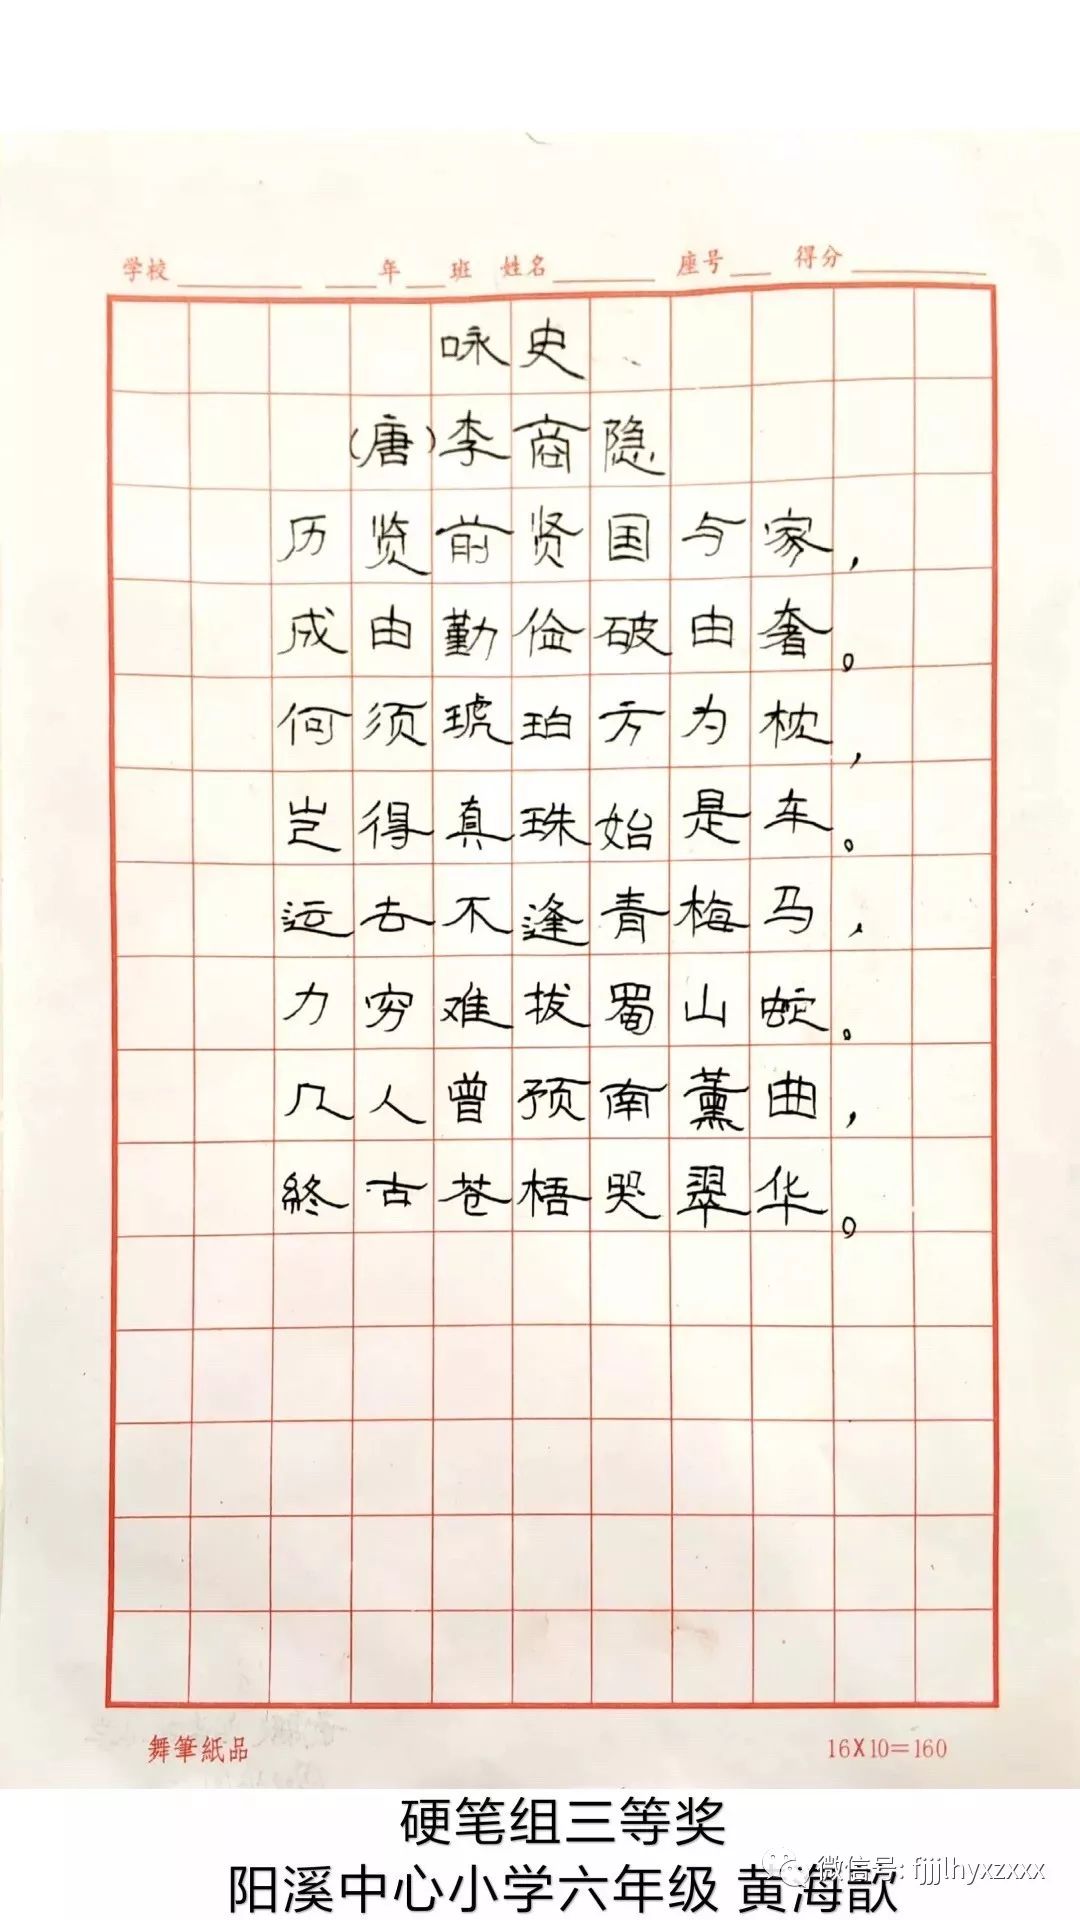 学校 年 班 姓名 座号 得分
咏史
(唐)李商隐
历览前贤国与家,
成由勤俭破由奢。
何须琥珀方为枕,
岂得真珠始是车。
运去不逢青梅马,
力穷难拔蜀山蛇。
几人曾预南薰曲,
終古苍梧哭翠华。
舞筆紙品
16X10=160
硬笔组三等奖
阳溪中心小学六年级 黄海歆
微信号: fjjjlhyxzxxx